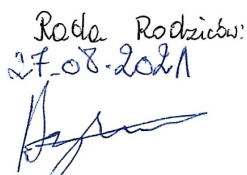 Rada Rodziców:
27-08-2021